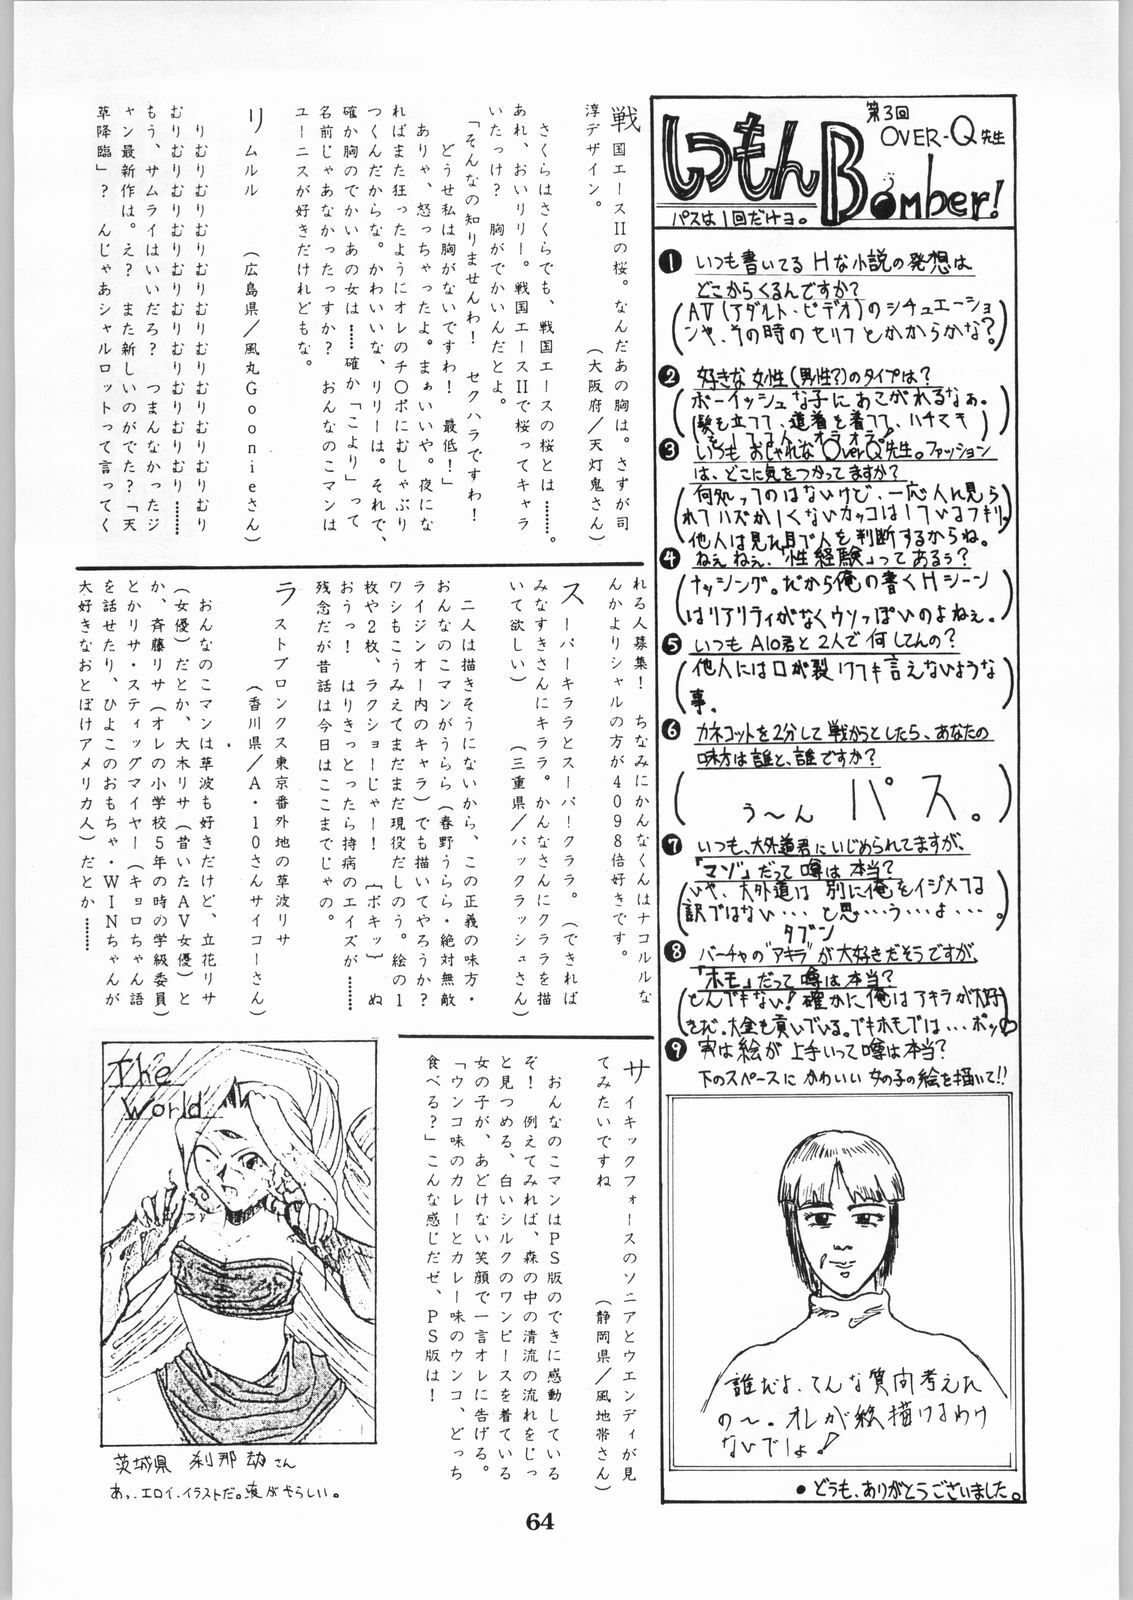 第3回
OVER-Q先生
しつもんBomber!
パスは1回だけヨ。
❶ いつも書いてるHな小説の発想は
どこからくるんですか?
(AV(アダルト・ビデオ)のシチュエーショ
ンや、その時のセリフとかからかな?)
❷ 好きな女性(男性?)のタイプは?
(ボーイッシュな子にあこがれるなぁ。
髪を立てて、道着を着てて、ハチマキ
❸ いつもおしゃれなOverQ先生。ファッション
は、どこに気をつかってますか?
(何知ってのはないけど、一応人に見ら
れてハズかしくないカッコはしているつもり。
他人は見た目で人を判断するからね。)
❹ ねぇねぇ、「性経験」ってあるぅ?
(ナッシング。だから俺の書くHシーン
はリアリティがなくウソっぽいのよねぇ。)
❺ いつもAlo君と2人で何してんの?
(他人には口が裂けても言えないような
事。)
❻ カネコットを2分して戦かうとしたら、あなたの
味方は誰と、誰ですか?
(う〜ん パス。)
❼ いつも、大外道君にいじめられてますが、
「マゾ」だって噂は本当?
(いや、大外道は別に俺をイジメてる
訳ではない…と思…う…よ…。)
タブン
❽ バーチャの"アキラ"が大好きだそうですが、
「ホモ」だって噂は本当?
(とんでもない!確かに俺はアキラが大好
きだ。大金も貢いでいる。でもホモでは…ポッ♡)
❾ 実は絵が上手いって噂は本当?
下のスペースにかわいい女の子の絵を描いて!!
誰だよ、こんな質問考えた
の〜。オレが絵描けるわけ
ないでしょ!
●どうも、ありがとうございました。
戦国エースIIの桜。なんだあの胸は。さすが司
淳デザイン。
(大阪府/天灯鬼さん)
さくらはさくらでも、戦国エースの桜とは………。
あれ、おいリリー。戦国エースIIで桜ってキャラ
いたっけ? 胸がでかいんだとよ。
「そんなの知りませんわ! セクハラですわ!
どうせ私は胸がないですわ! 最低!」
ありゃ、怒っちゃったよ。まぁいいや。夜にな
ればまた狂ったようにオレのチ〇ポにむしゃぶり
つくんだからな。かわいいな、リリーは。それで、
確か胸のでかいあの女は……確か「こより」って
名前じゃあなかったっすか? おんなのこマンは
ユーニスが好きだけれどもな。
リムルル
(広島県/風丸Goonieさん)
りむりむりむりむりむりむりむりむりむりむり
むりむりむりむりむりむりむりむりむり………
もう、サムライはいいだろ? つまんなかったジ
ャン最新作は。え? また新しいのがでた?「天
草降臨」? んじゃあシャルロットって言ってく
れる人募集! ちなみにかんなくんはナコルルな
んかよりシャルの方が4098倍好きです。
スーパーキララとスーパークララ。(できれば
みなすきさんにキララ。かんなさんにクララを描
いて欲しい)
(三重県/バックラッシュさん)
二人は描きそうにないから、この正義の味方・
おんなのこマンがうらら(春野うらら・絶対無敵
ライジンオー内のキャラ)でも描いてやろうか?
ワシもこうみえてまだまだ現役だしのう。絵の1
枚や2枚、ラクショーじゃー! [ボキッ] ぬ
おうっ! はりきっとったら持病のエイズが………
残念だが昔話は今日はここまでじゃの。
ラストブロンクス東京番外地の草波リサ
(香川県/A・10さんサイコーさん)
おんなのこマンは草波も好きだけど、立花リサ
(女優)だとか、大木リサ(昔いたAV女優)と
か、斉藤リサ(オレの小学校5年の時の学級委員)
とかリサ・スティッグマイヤー(キョロちゃん語
を話せたり、ひよこのおもちゃ・WINちゃんが
大好きなおとぼけアメリカ人)だとか………
サイキックフォースのソニアとウエンディが見
てみたいですね
(静岡県/風地帯さん)
おんなのこマンはPS版のできに感動している
ぞ! 例えてみれば、森の中の清流の流れをじっ
と見つめる、白いシルクのワンピースを着ている
女の子が、あどけない笑顔で一言オレに告げる。
「ウンコ味のカレーとカレー味のウンコ、どっち
食べる?」こんな感じだゼ、PS版は!
The
World
茨城県 刹那劫さん
あっ、エロイ、イラストだ。液がやらしい。
64